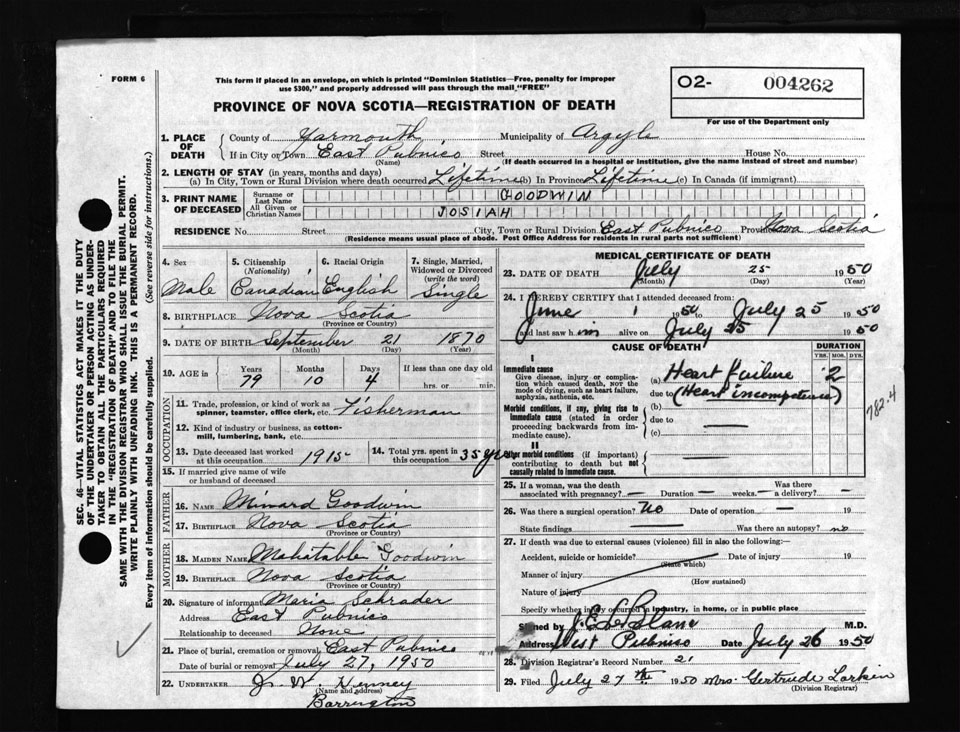 FORM 6
This form if placed in an envelope, on which is printed "Dominion Statistics—Free, penalty for improper
use $300," and properly addressed will pass through the mail "FREE"
O2- 004262
For use of the Department only
PROVINCE OF NOVA SCOTIA—REGISTRATION OF DEATH
1. PLACE OF DEATH
County of Yarmouth Municipality of Argyle
If in City or Town East Pubnico Street House No.
(Name) (If death occurred in a hospital or institution, give the name instead of street and number)
2. LENGTH OF STAY (in years, months and days)
(a) In City, Town or Rural Division where death occurred Lifetime (b) In Province Lifetime (c) In Canada (if immigrant)
3. PRINT NAME OF DECEASED
Surname or Last Name GOODWIN
All Given or Christian Names JOSIAH
RESIDENCE No. Street City, Town or Rural Division East Pubnico Province Nova Scotia
(Residence means usual place of abode. Post Office Address for residents in rural parts not sufficient)
4. Sex Male
5. Citizenship (Nationality) Canadian
6. Racial Origin English
7. Single, Married, Widowed or Divorced (write the word) Single
8. BIRTHPLACE Nova Scotia
(Province or Country)
9. DATE OF BIRTH September 21 1870
(Month) (Day) (Year)
10. AGE in Years Months Days If less than one day old
79 10 4 hrs. or min.
OCCUPATION
11. Trade, profession, or kind of work as spinner, teamster, office clerk, etc. Fisherman
12. Kind of industry or business, as cotton-mill, lumbering, bank, etc.
13. Date deceased last worked at this occupation 1915
14. Total yrs. spent in this occupation 35 yrs
15. If married give name of wife or husband of deceased
FATHER
16. NAME Minard Goodwin
17. BIRTHPLACE Nova Scotia
(Province or Country)
MOTHER
18. MAIDEN NAME Mahatable Goodwin
19. BIRTHPLACE Nova Scotia
(Province or Country)
20. Signature of informant Maria Schrader
Address East Pubnico
Relationship to deceased None
21. Place of burial, cremation or removal East Pubnico
Date of burial or removal July 27, 1950
22. UNDERTAKER W. Kenney
(Name and address)
Barrington
MEDICAL CERTIFICATE OF DEATH
23. DATE OF DEATH July 25 1950
(Month) (Day) (Year)
24. I HEREBY CERTIFY that I attended deceased from:
June 1 1950 to July 25 1950
and last saw him alive on July 25 1950
CAUSE OF DEATH
DURATION
YRS. MOS. DYS.
I
Immediate cause
Give disease, injury or complication which caused death, NOT the mode of dying, such as heart failure, asphyxia, asthenia, etc.
(a) Heart Failure 2
due to (Heart incompetence)
782.4
Morbid conditions, if any, giving rise to immediate cause (stated in order proceeding backwards from immediate cause).
(b)
due to
(c)
II
Other morbid conditions (if important) contributing to death but not causally related to immediate cause.
25. If a woman, was the death associated with pregnancy? — Duration — weeks. — Was there a delivery? —
26. Was there a surgical operation? No Date of operation — 19
State findings Was there an autopsy? no
27. If death was due to external causes (violence) fill in also the following:—
Accident, suicide or homicide? Date of injury 19
(State which)
Manner of injury
(How sustained)
Nature of injury
Specify whether injury occurred in industry, in home, or in public place
Signed by J.E. LeBlanc M.D.
Address West Pubnico Date July 26 1950
28. Division Registrar's Record Number 21
29. Filed July 27th 1950 Mrs. Gertrude Larkin
(Division Registrar)
SEC. 46—VITAL STATISTICS ACT MAKES IT THE DUTY
OF THE UNDERTAKER OR PERSON ACTING AS UNDER-
TAKER TO OBTAIN ALL THE PARTICULARS REQUIRED
IN THE "REGISTRATION OF DEATH" AND TO FILE THE
SAME WITH THE DIVISION REGISTRAR WHO SHALL ISSUE THE BURIAL PERMIT.
WRITE PLAINLY WITH UNFADING INK. THIS IS A PERMANENT RECORD.
Every item of information should be carefully supplied. (See reverse side for instructions.)